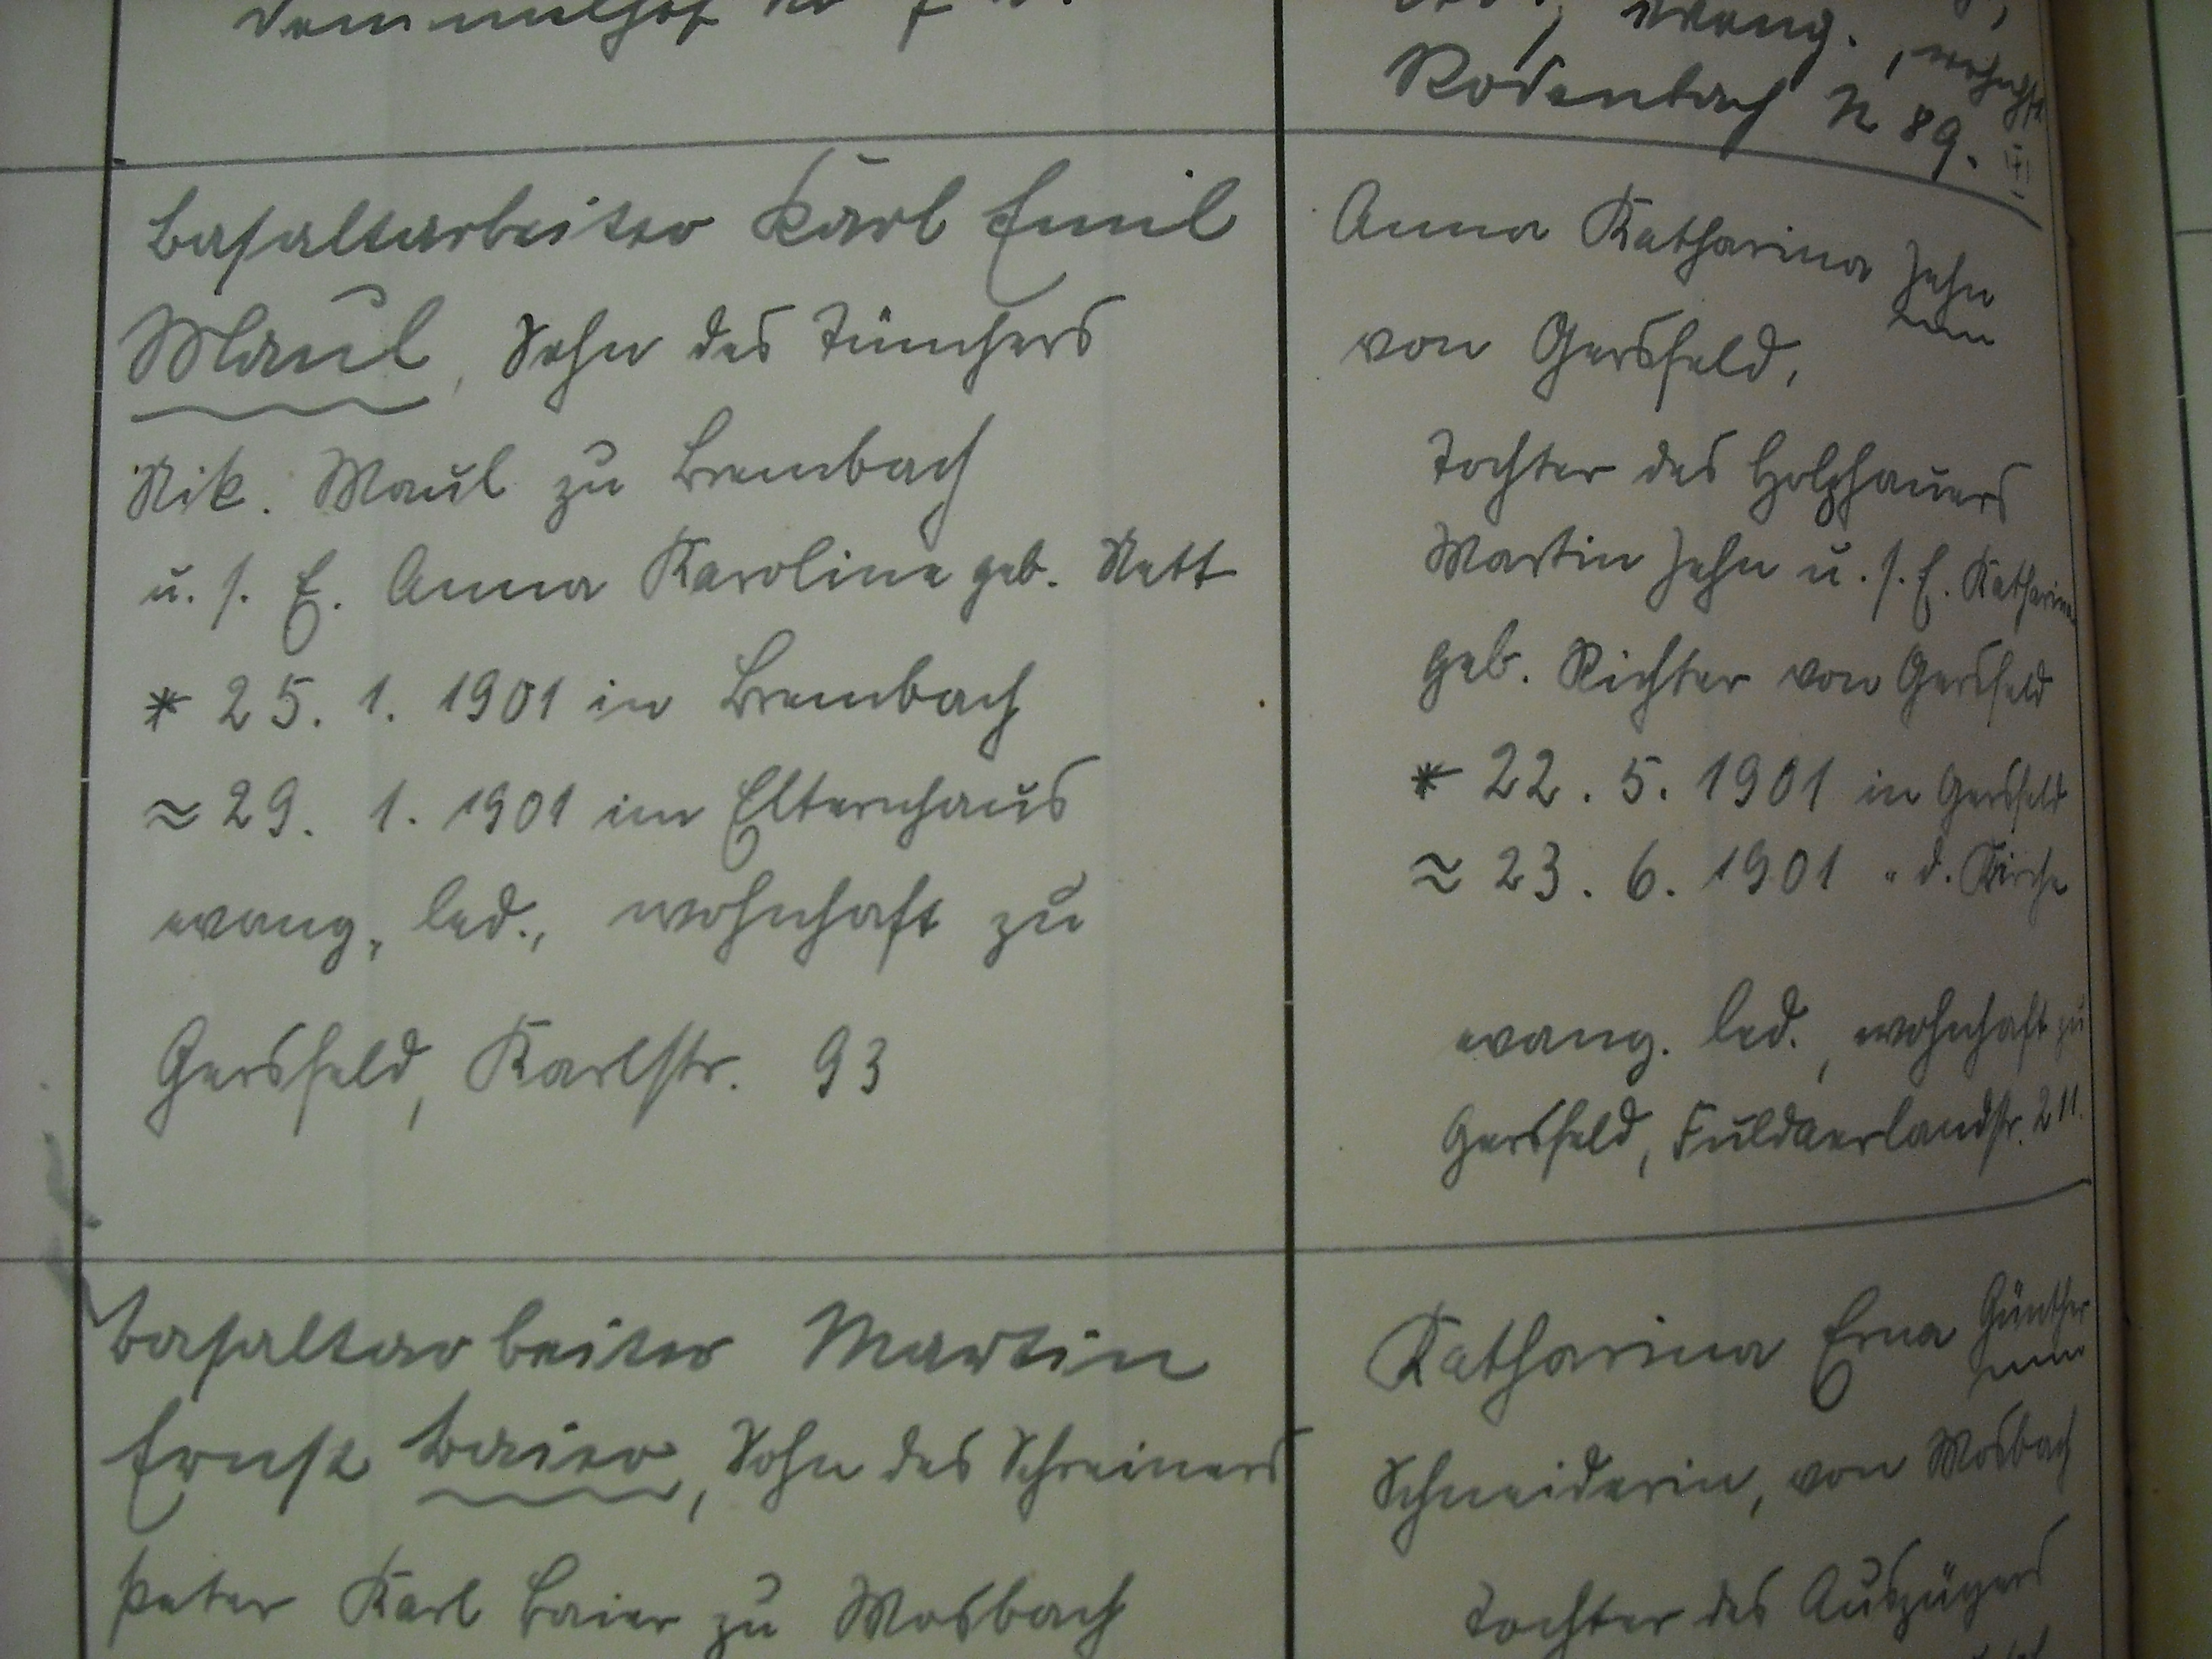 evang.,
Rodenbach N 89.
Basaltarbeiter Karl Emil
Maul, Sohn des Tünchers
Nik. Maul zu Brembach
u. s. E. Anna Karoline geb. Nett
* 25. 1. 1901 in Brembach
≈ 29. 1. 1901 im Elternhaus
evang., led., wohnhaft zu
Gersfeld, Karlstr. 93
Anna Katharina Zehn
von Gersfeld,
Tochter des Holzhauers
Martin Zehn u. s. E. Katharina
geb. Richter von Gersfeld
* 22. 5. 1901 in Gersfeld
≈ 23. 6. 1901 " d. Kirche
evang. led., wohnhaft zu
Gersfeld, Fuldaerlandstr. 211.
Basaltarbeiter Martin
Ernst Baier, Sohn des Schreiners
Peter Karl Baier zu Mosbach
Katharina Erna Günther
Schneiderin, von Mosbach
Tochter des Auszügers